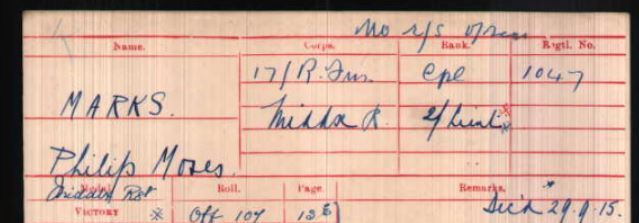 Name. Corps. Rank. Regtl. No.
17/R. Fus. Cpl 1047
MARKS. Middx R. 2/Lieut.
Philip Moses.
Middx Rgt
Medal. Roll. Page. Remarks.
VICTORY Off 107 Died 29.9.15.